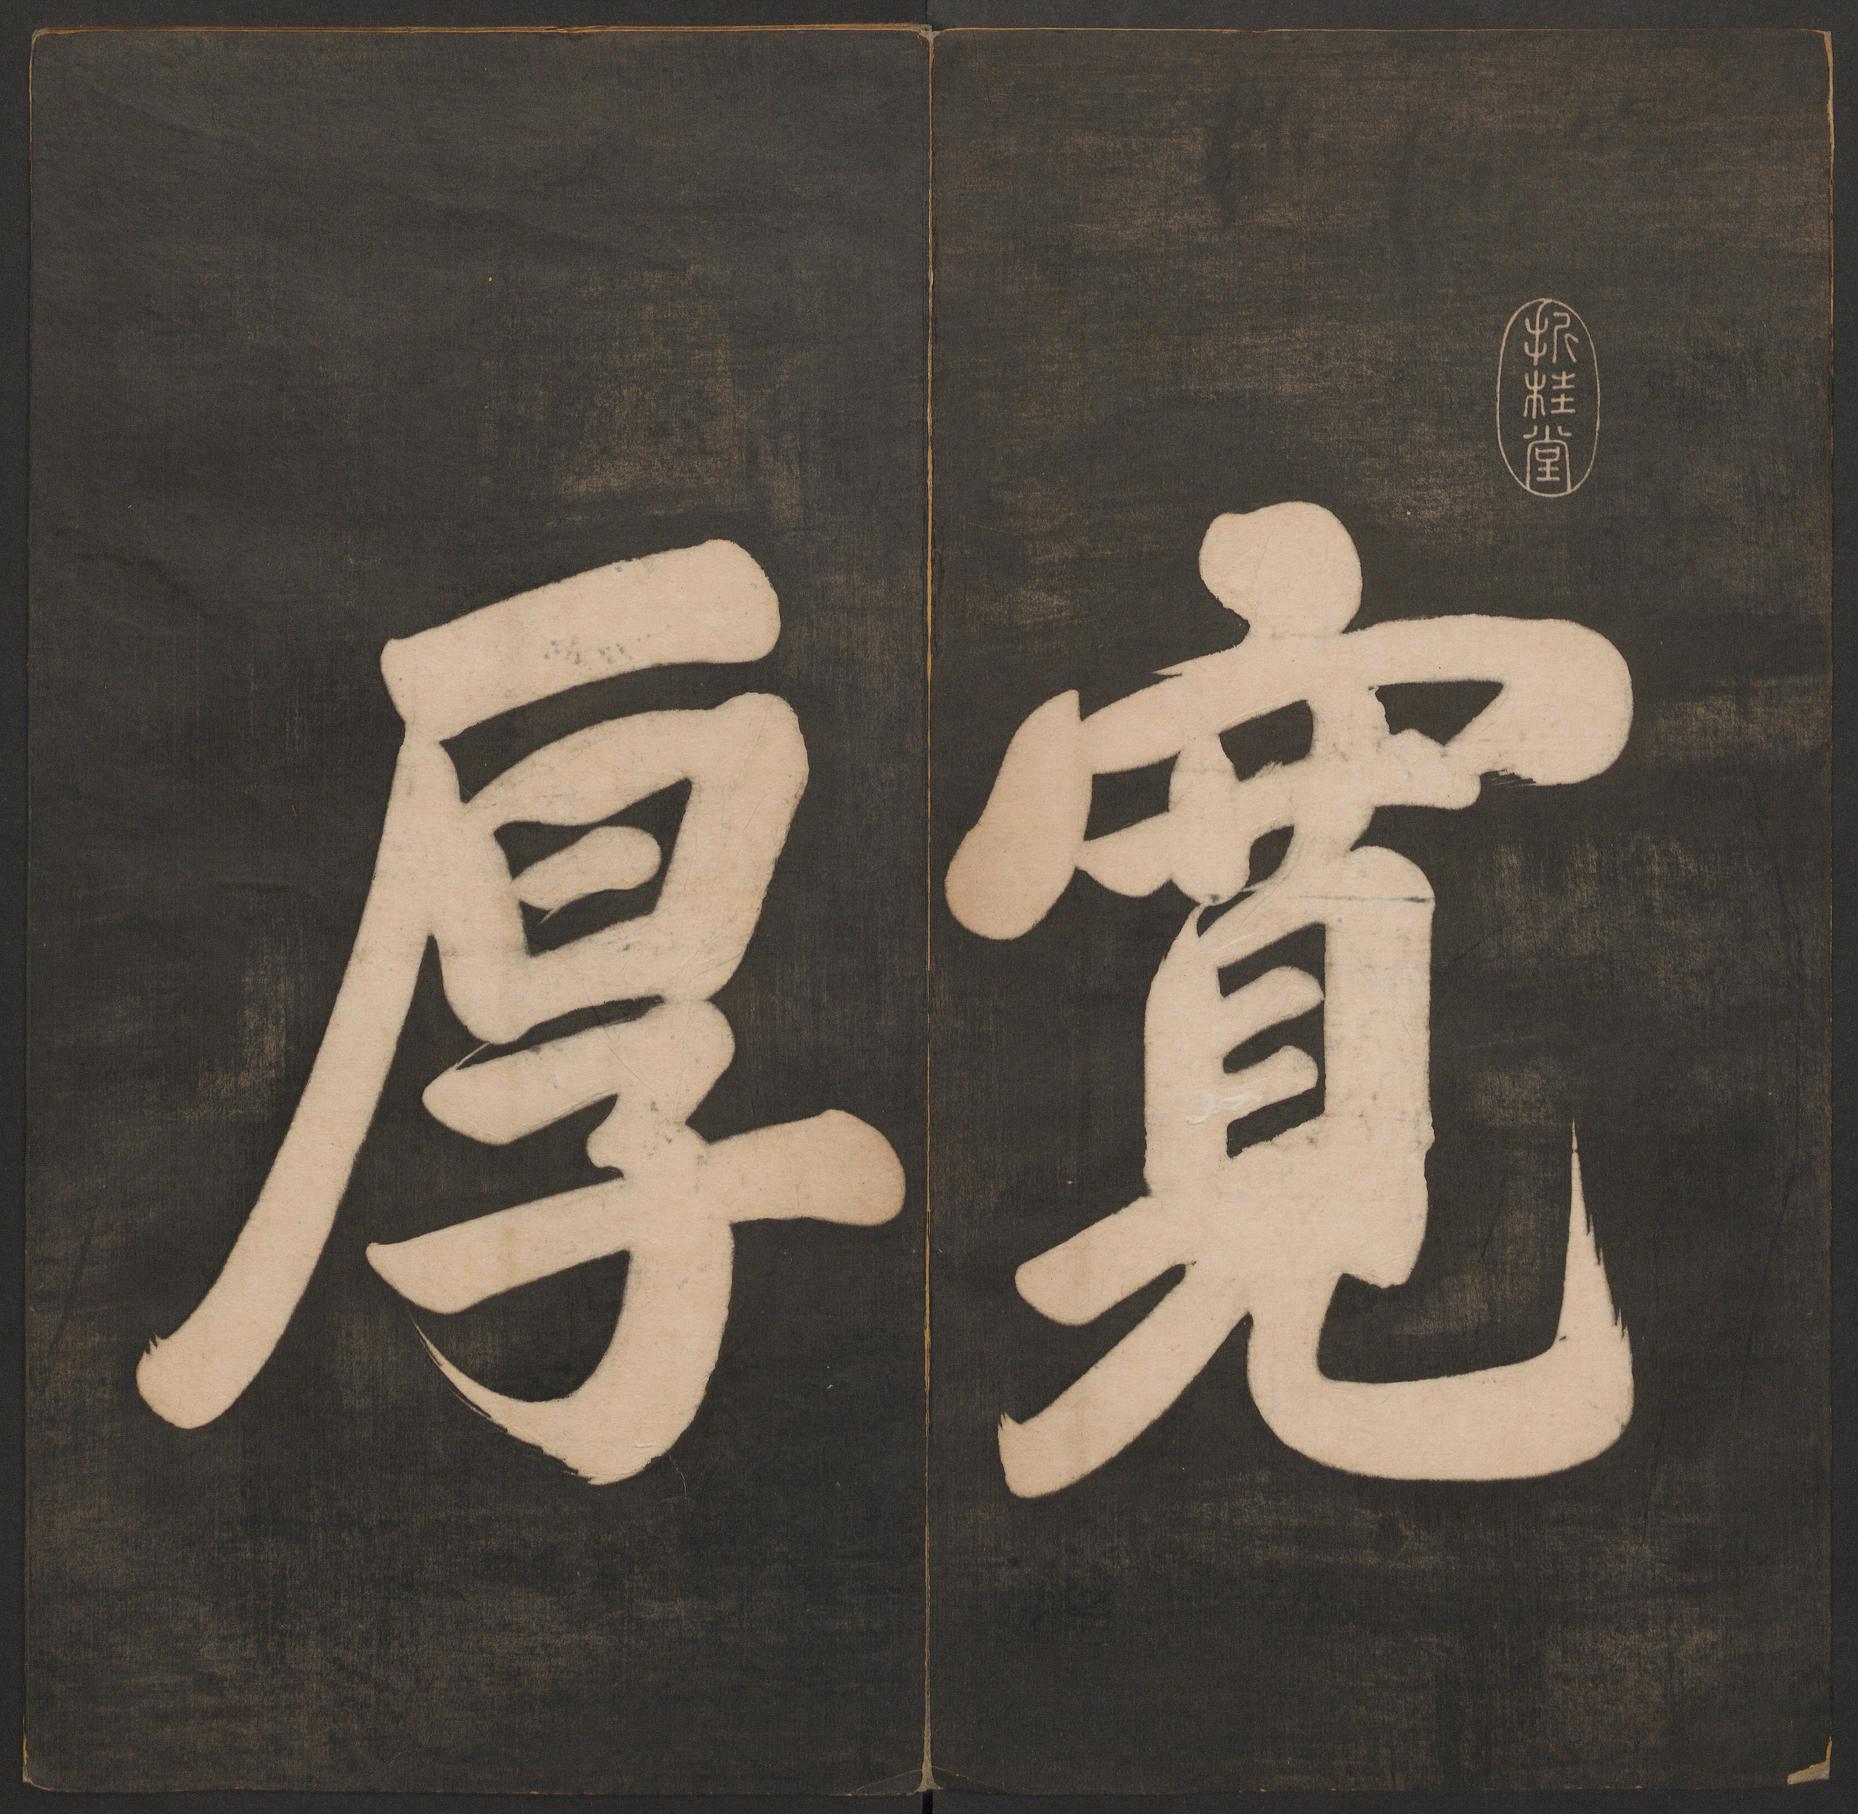 折桂堂
寛
厚